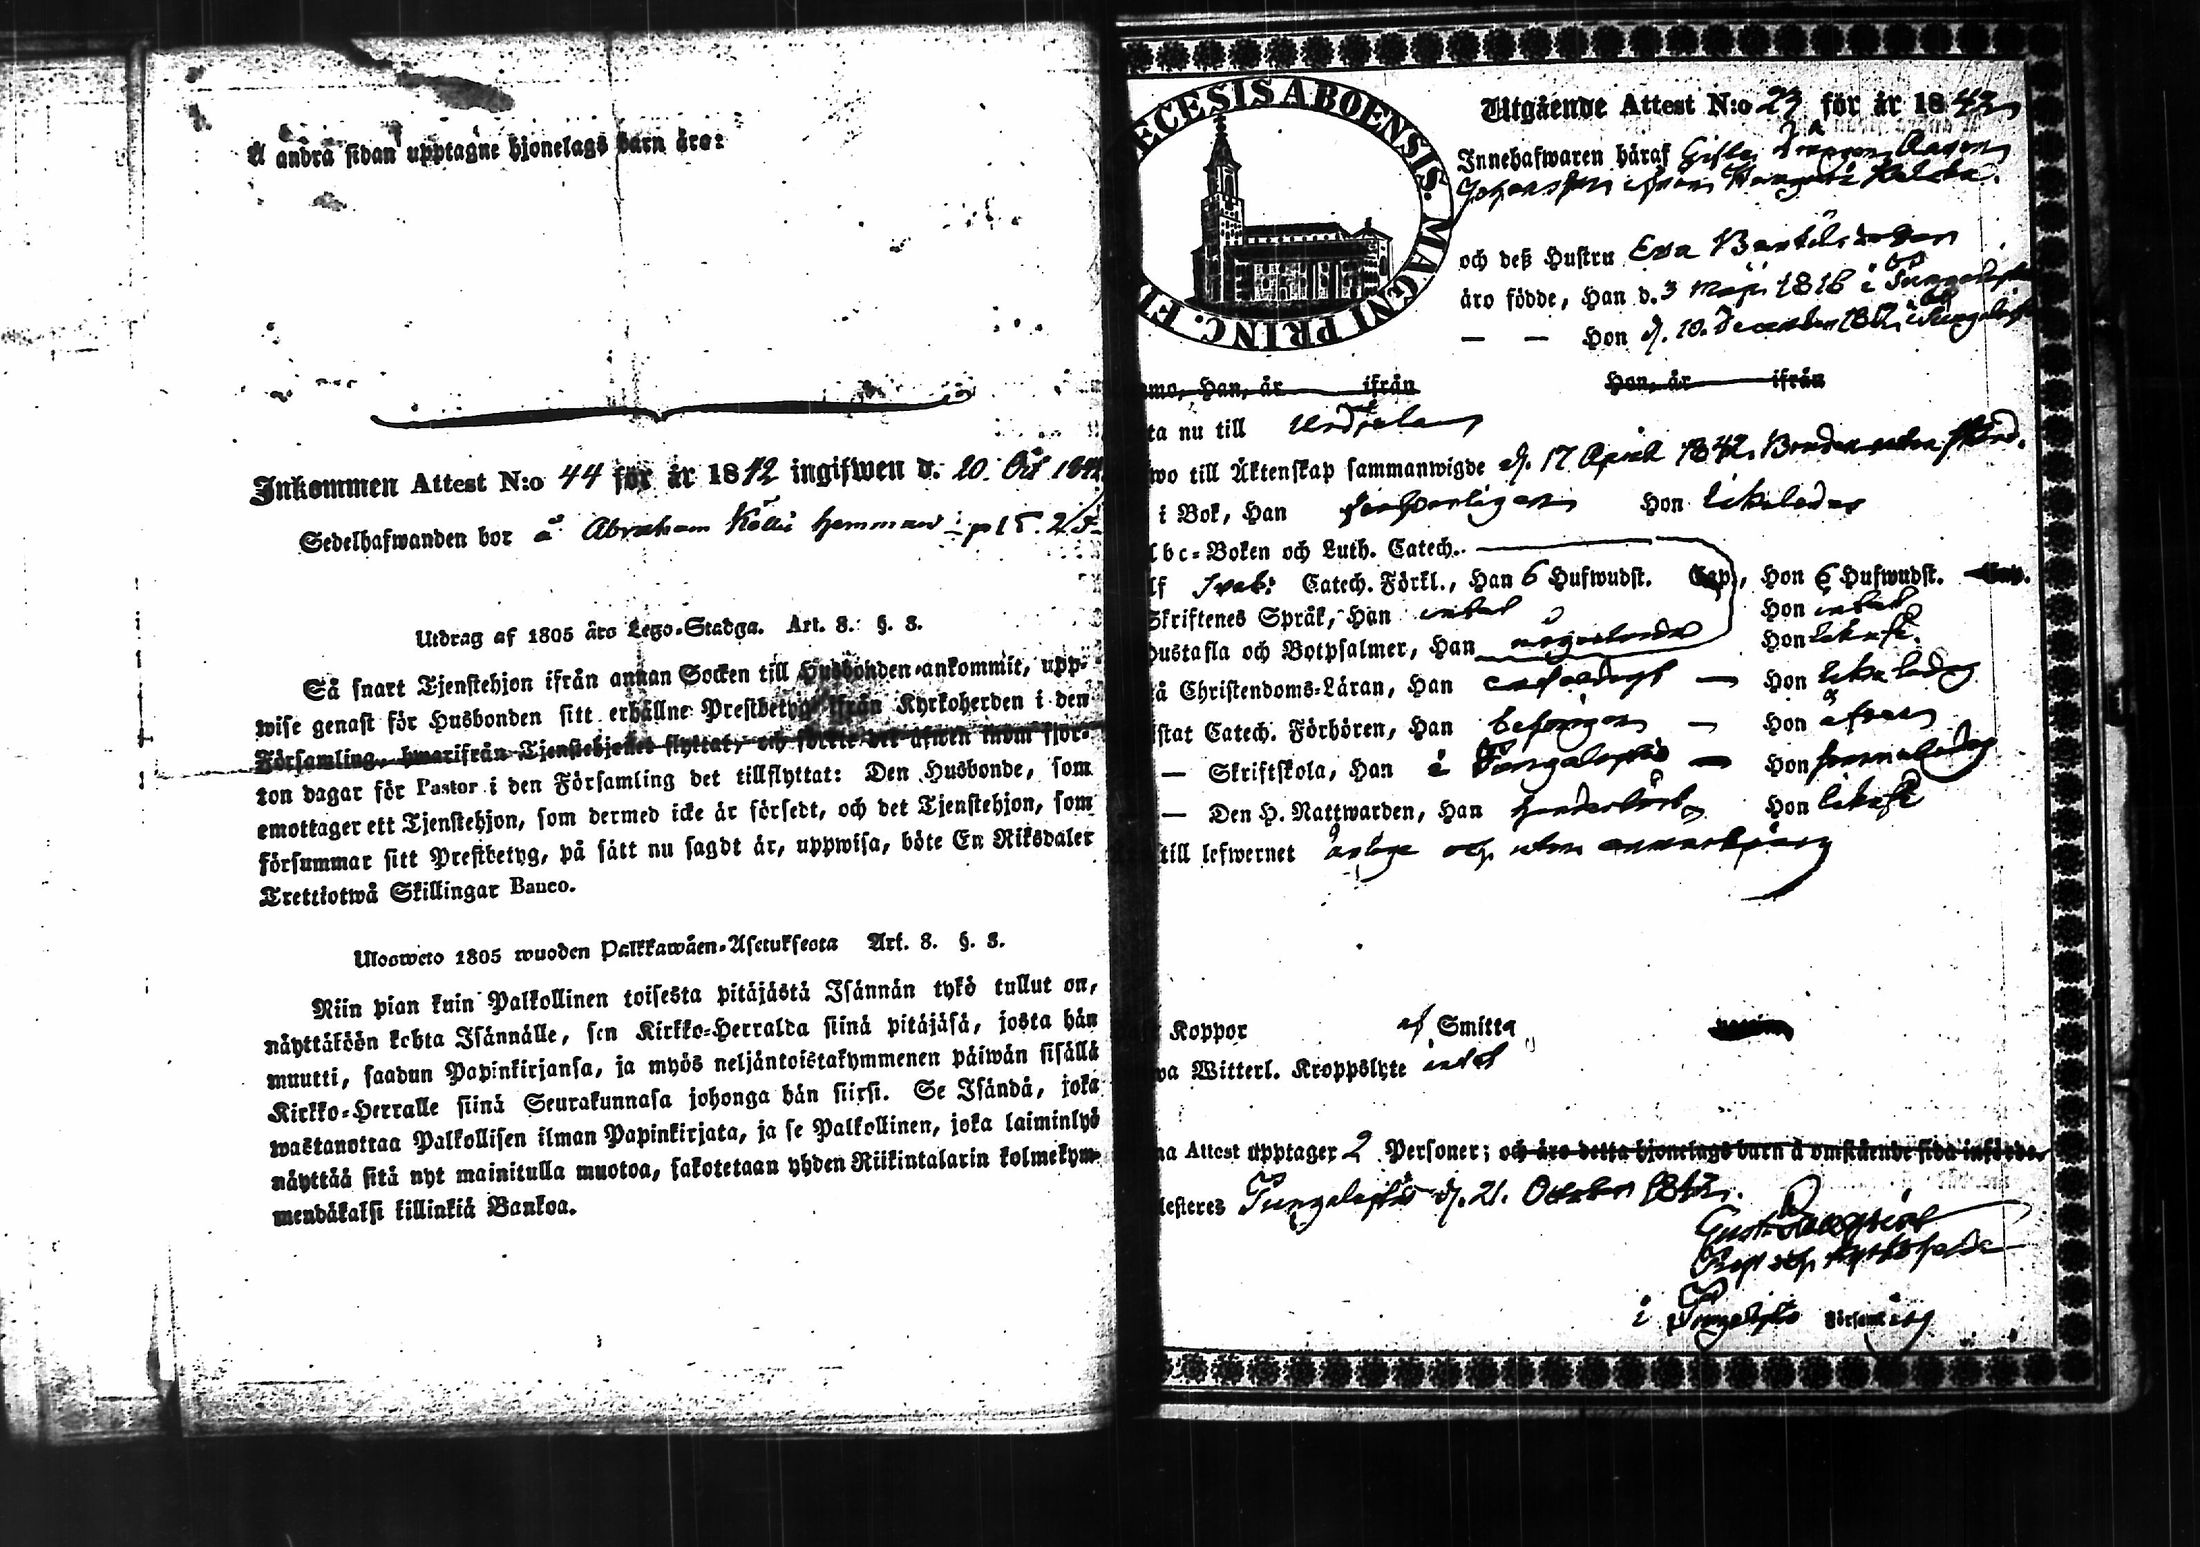 Å andra sidan upptagne hjonelags barn äro:
Inkommen Attest N:o 44 för år 1842 ingifwen d. 20. Oct 1842
Sedelhafwanden bor å Abraham Kölli hemman
Utdrag af 1805 års Lego-Stadga. Art. 8. §. 8.
Så snart Tjenstehjon ifrån annan Socken till Husbonden ankommit, upp-
wise genast för Husbonden sitt erhållne Prestbetyg ifrån Kyrkoherden i den
Församling, hwarifrån Tjenstehjonet flyttat, och inom fjor-
ton dagar för Pastor i den Församling det tillflyttat: Den Husbonde, som
emottager ett Tjenstehjon, som dermed icke är försedt, och det Tjenstehjon, som
försummar sitt Prestbetyg, på sätt nu sagdt är, uppwisa, böte En Riksdaler
Trettiotwå Skillingar Banco.
Ulosweto 1805 wuoden Palkkawäen-Asetuksesta Art. 8. §. 8.
Niin pian kuin Palkollinen toisesta pitäjästä Isännän tykö tullut on,
näyttäköön kohta Isännälle, sen Kirkko-Herralda siinä pitäjäsä, josta hän
muutti, saadun Papinkirjansa, ja myös neljäntoistakymmenen päiwän sisällä
Kirkko-Herralle siinä Seurakunnasa johonga hän siirsi. Se Isändä, joka
wastanottaa Palkollisen ilman Papinkirjata, ja se Palkollinen, joka laiminlyö
näyttää sitä nyt mainitulla muotoa, sakotetaan yhden Riikintalarin kolmekym-
mendäkaksi killinkiä Bankoa.
ECESIS ABOENSIS. MAGNI PRINC. F
Utgående Attest N:o 23 för år 1842
Innehafwaren häraf Gifte
Johansson ifrån
och deß Hustru Eva Bertilsdotter
äro födde, Han d. 3 Maji 1816 i Tyngelsjö
— — Hon d. 10. December i
mo, Han, år ifrån Hon, år ifrån
ta nu till Urdjala
wo till Äktenskap sammanwigde d. 17 April 1842.
i Bok, Han Hon likaledes
bc-Boken och Luth. Catech.
lf Sveb: Catech. Förkl., Han 6 Hufwudst. Cap., Hon 6 Hufwudst. Cap.
Skriftenes Språk, Han intet Hon intet
hustafla och Botpsalmer, Han någorlunda Hon likaså.
å Christendoms-Läran, Han enfaldigt — Hon likaledes
istat Catech. Förhören, Han — Hon äfven
— Skriftskola, Han i — Hon sammaledes
— Den H. Nattwarden, Han Hon likaså
till lefwernet ärlige och utan anmärkning
Koppor af Smitta
wa Witterl. Kroppslyte intet
na Attest upptager 2 Personer; och äro detta hjonelags barn å omstående sida införde.
testeres d. 21. October 1842.
Gust.
Prost och Kyrkoherde
i Församling